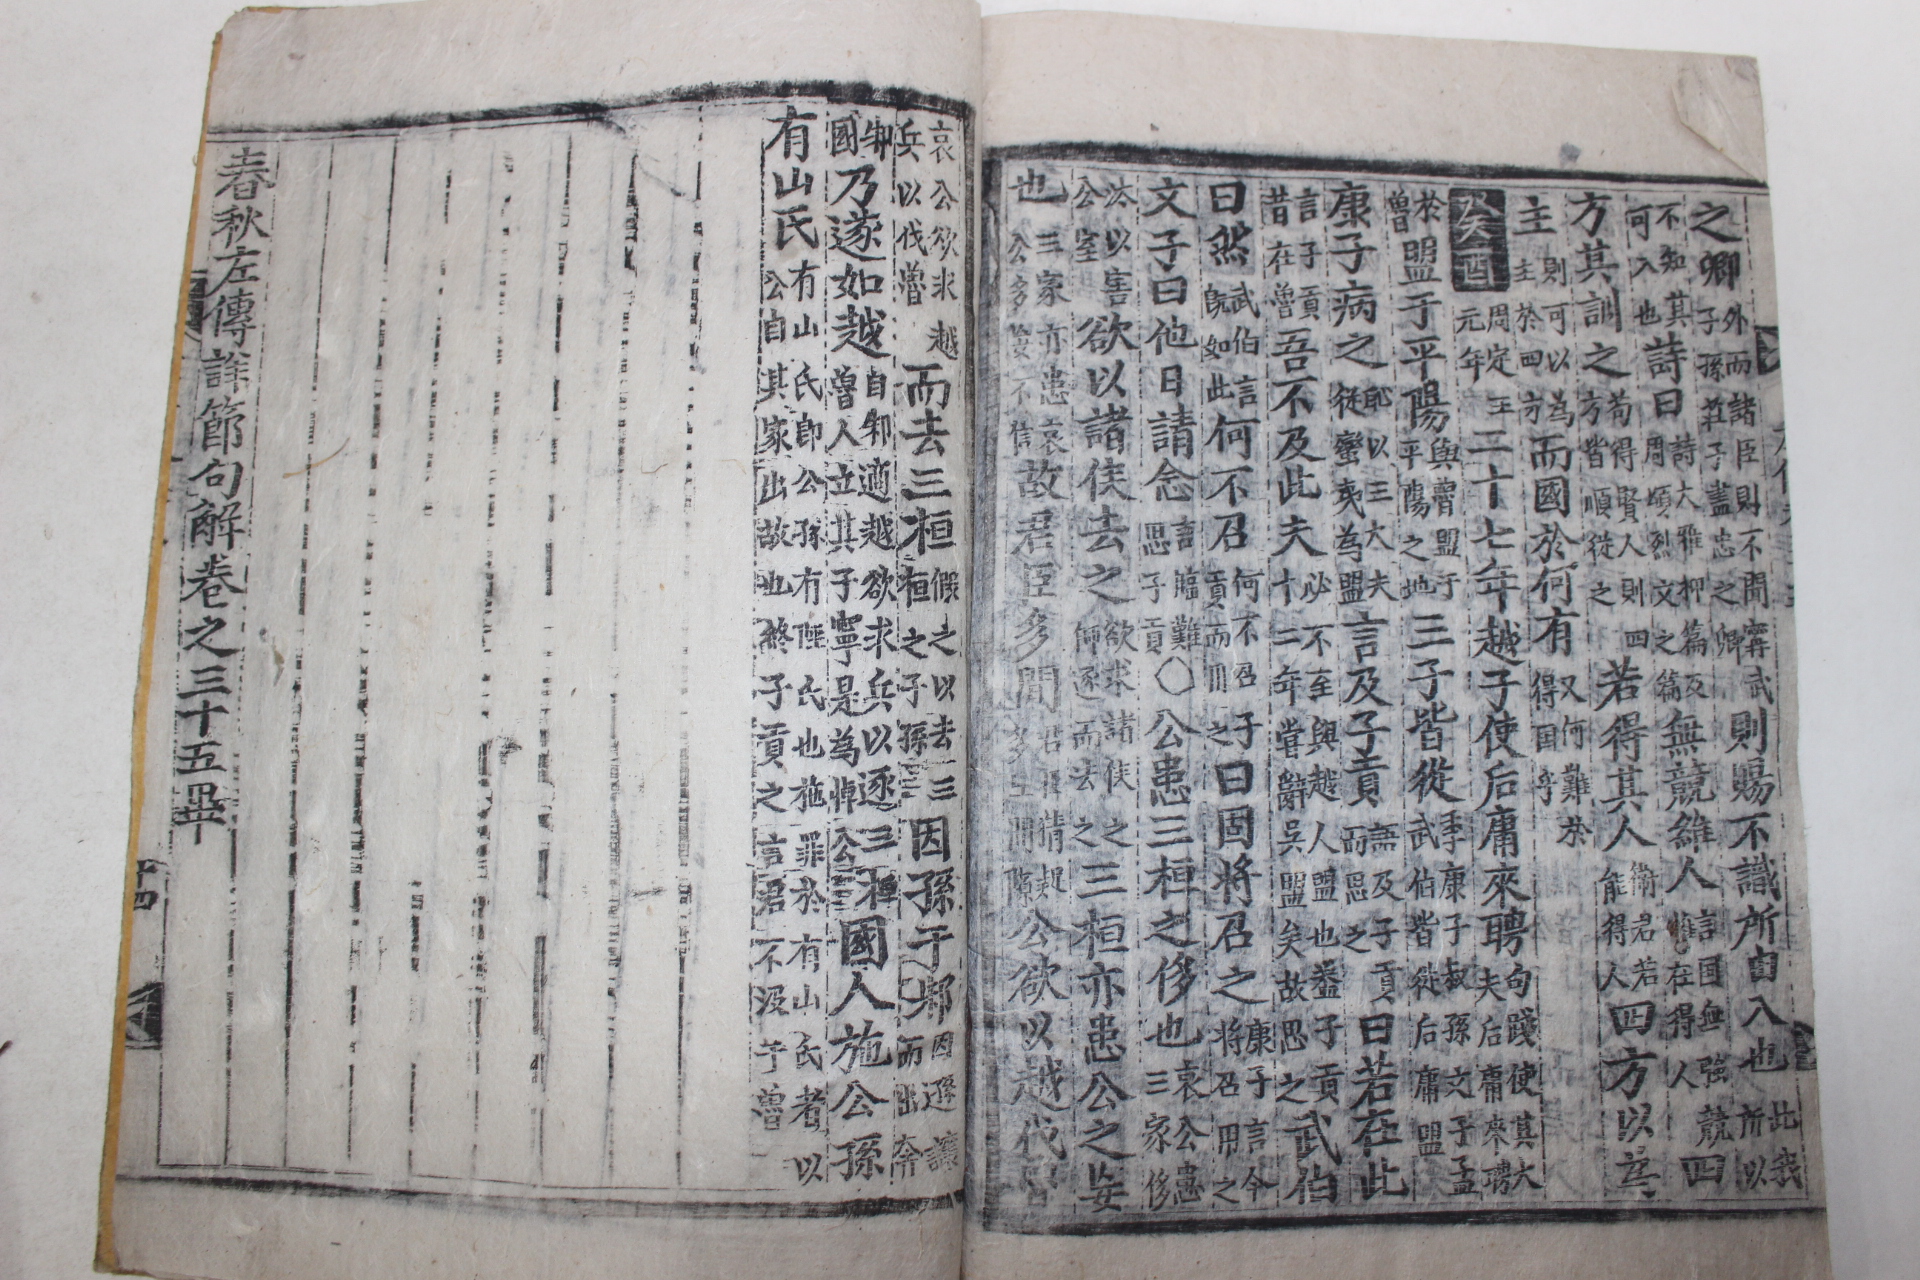 之卿外而諸臣則不聞甯武子孫莊子蓋忠之卿則賜不識所由入也此我所以
不知其可入也詩曰詩大雅抑篇及周頌烈文之篇無競維人言国無強競惟在得人四
方其訓之苟得賢人則四方皆順從之若得其人衛君若能得人四方以爲
主則可以為主於四方而國於何有又何難於得国乎
癸酉周定王元年二十七年越子使后庸來聘句踐使其大夫后庸來聘
於魯盟于平陽與魯盟于平陽之地三子皆從季康子叔孫文子孟武伯皆從后庸盟
康子病之耻以三大夫從蠻夷為盟言及子貢語及子貢而思之曰若在此
言子貢昔在魯吾不及此夫必不至與越人盟也蓋子貢十二年嘗辭吳盟矣故思之武伯
曰然武伯言旣如此何不召何不召子貢而用之曰固將召之康子言今将召用之
文子曰他日請念言臨難思子貢○公患三桓之侈也哀公患三家侈
汰以害公室欲以諸侯去之欲求諸侯之師逐而去之三桓亦患公之妄
也三家亦患哀公多妄不信故君臣多間君臣猜疑多生間隙公欲以越伐魯
哀公欲求越兵以伐魯而去三桓假之以去三桓之子孫因孫于邾因遜讓而出奔
邾國乃遂如越自邾適越欲求兵以逐三桓魯人立其子寧是為悼公國人施公孫
有山氏有山氏即公孫有陘氏也施罪於有山氏者以公自其家出故也終子貢之言君不沒于魯
春秋左傳詳節句解卷之三十五畢
十四